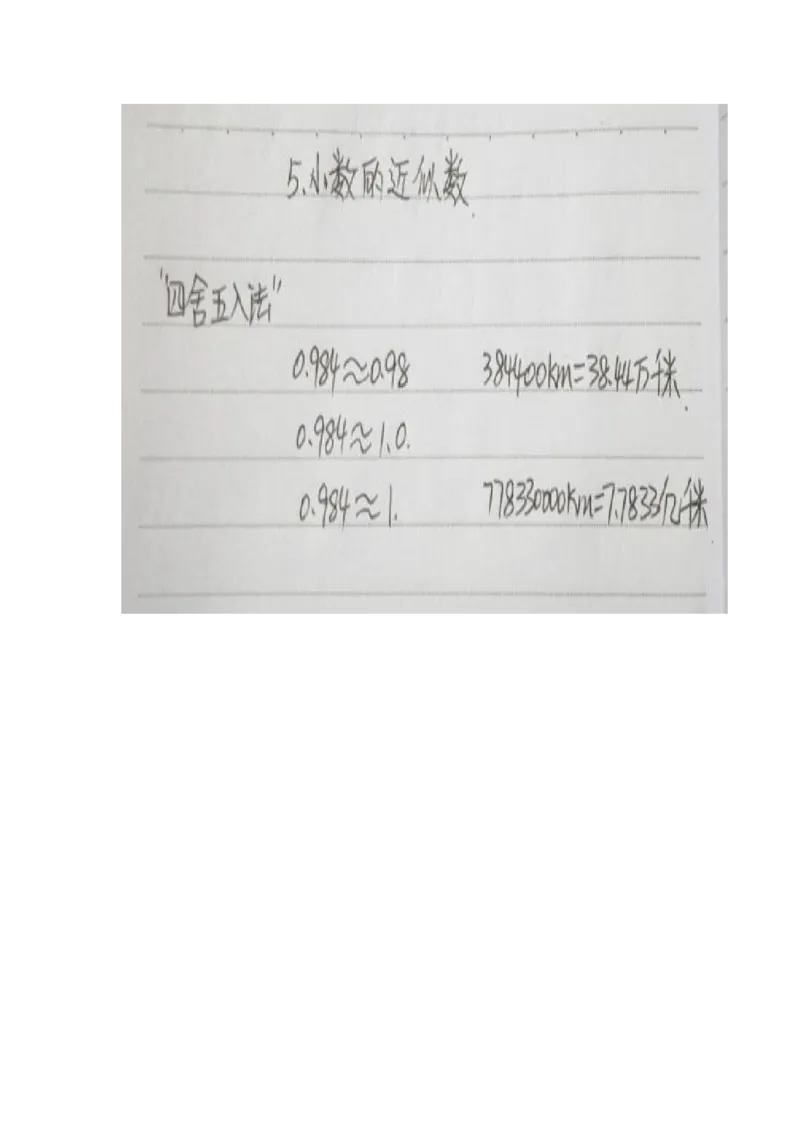 5.小数的近似数
"四舍五入法"
0.984≈0.98 384400km=38.44万千米
0.984≈1.0.
0.984≈1. 778330000km=7.7833亿千米